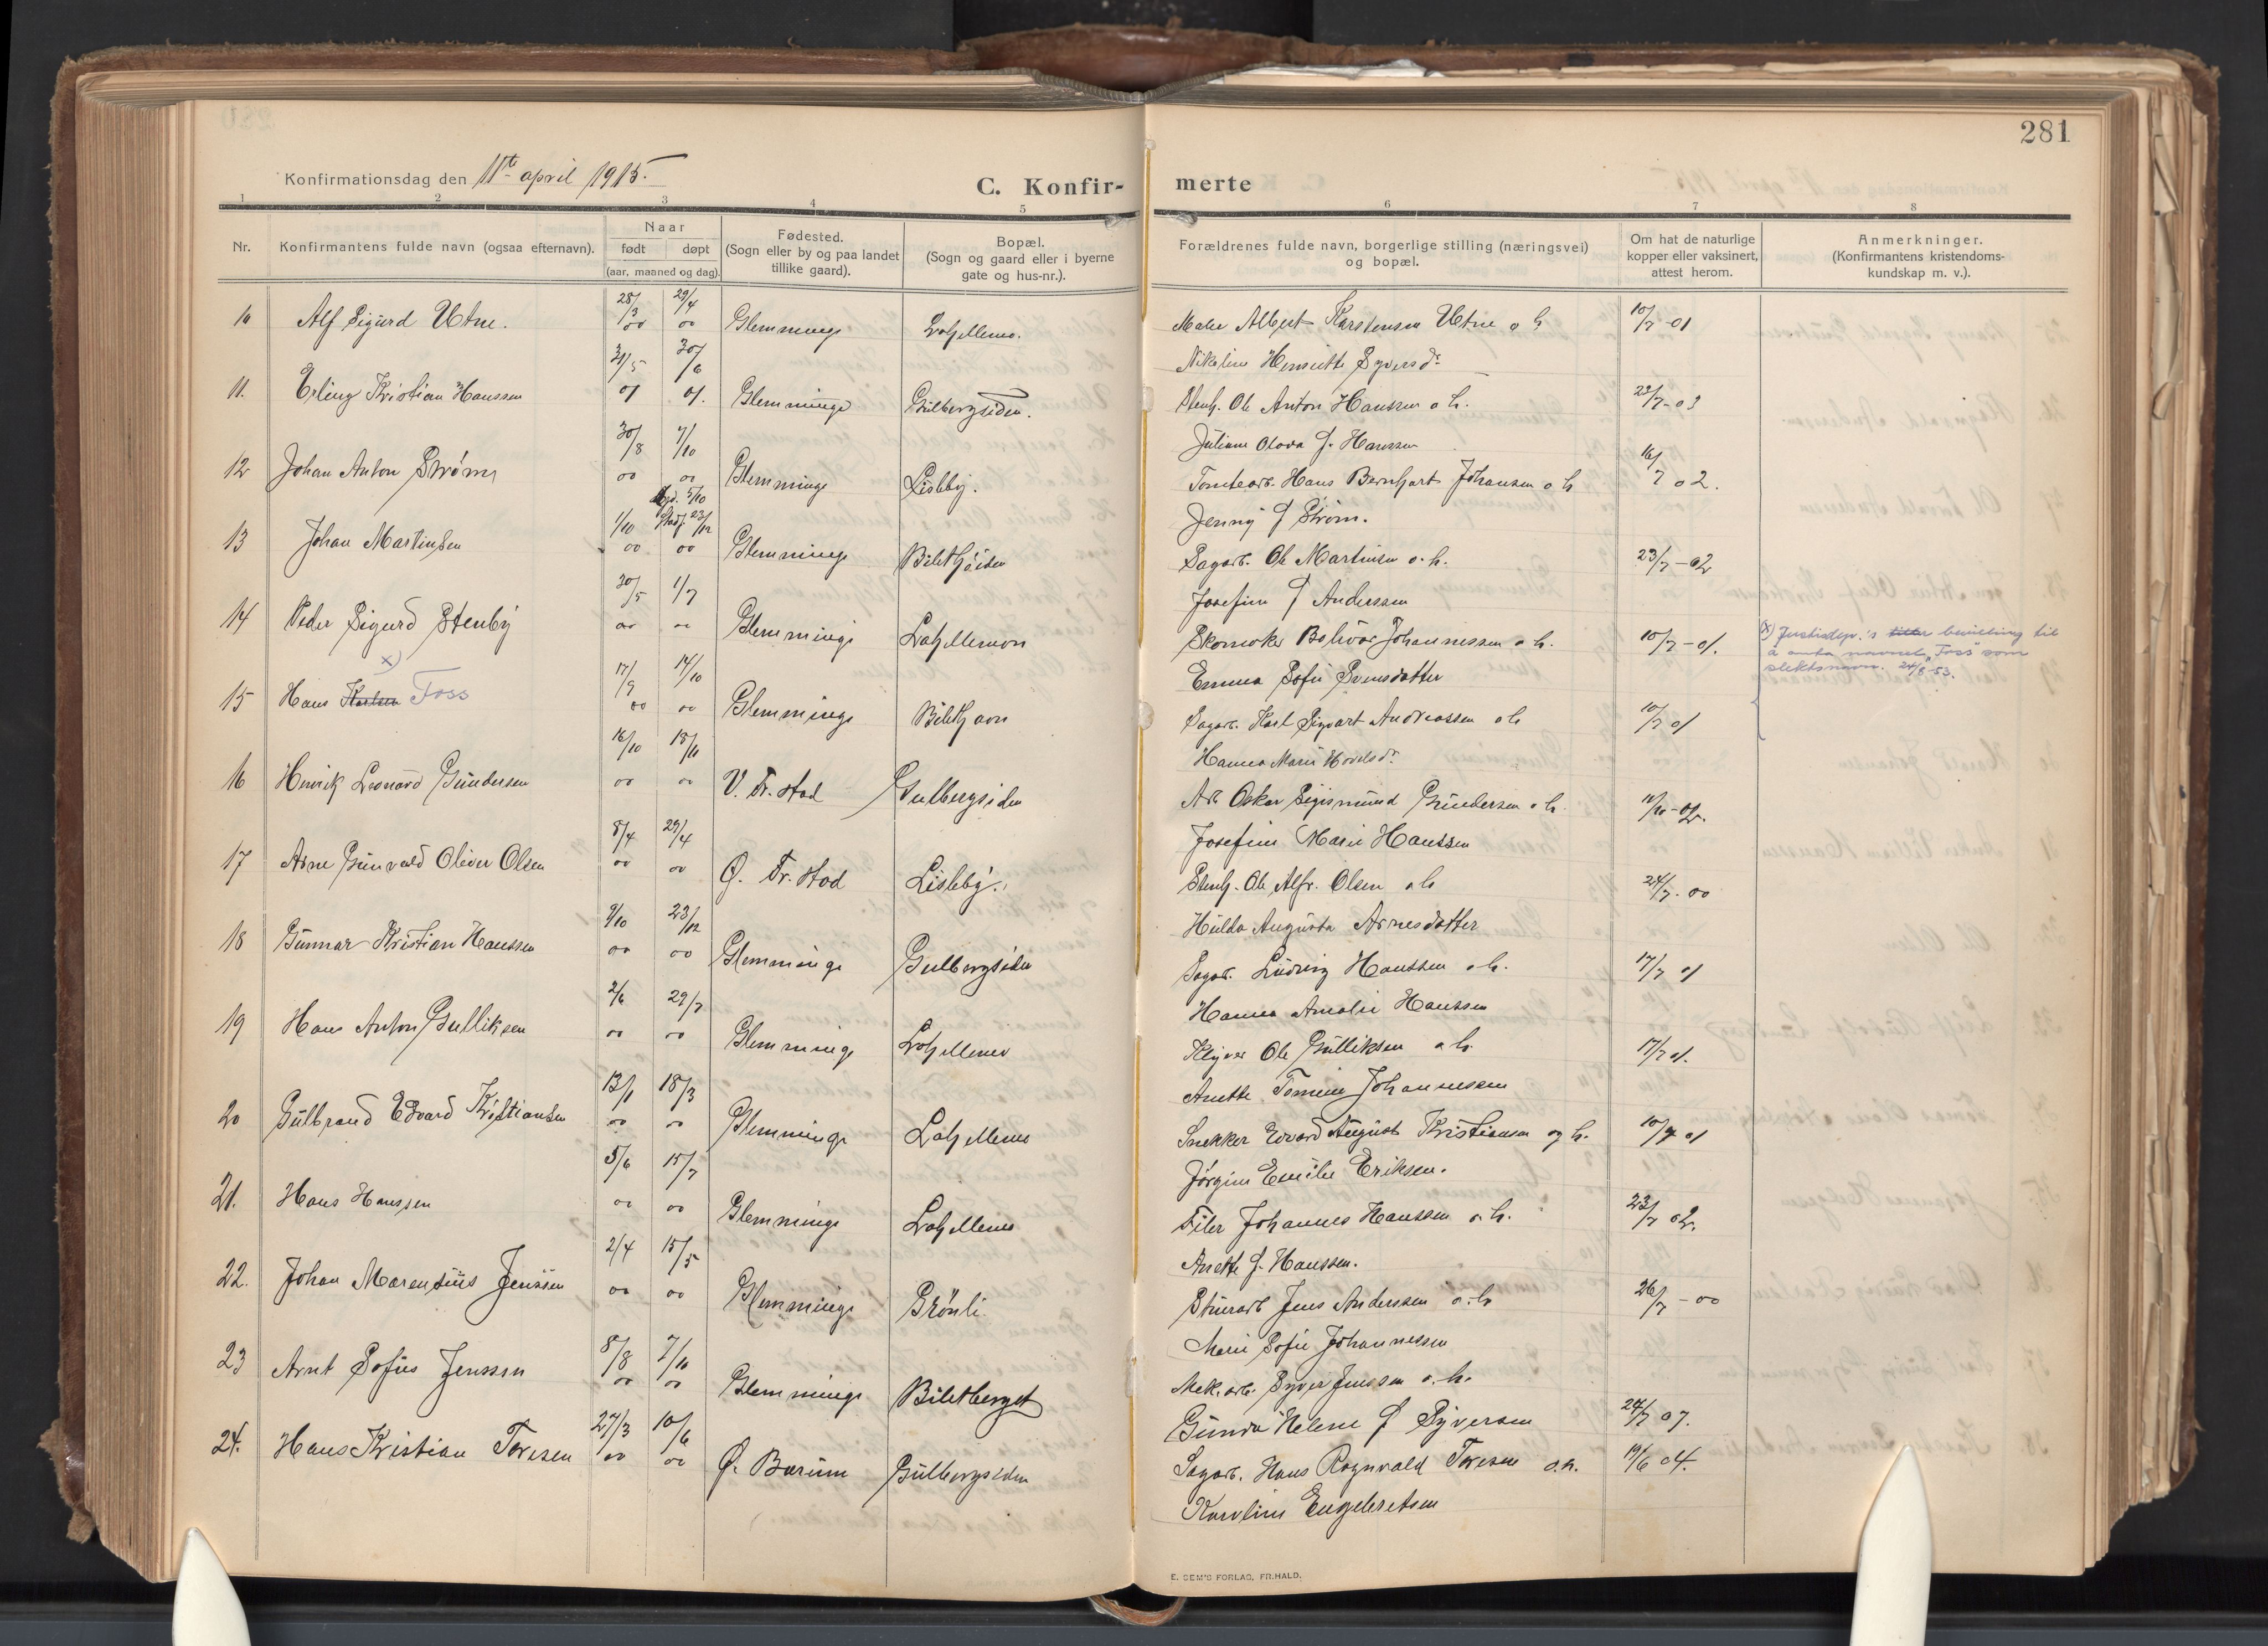 281
Konfirmationsdag den 11te april 1915.
C. Konfir- merte
1 2 3 4 5 6 7 8
Nr.
Konfirmantens fulde navn (ogsaa efternavn).
Naar
født døpt
(aar, maaned og dag).
Fødested.
(Sogn eller by og paa landet
tillike gaard).
Bopæl.
(Sogn og gaard eller i byerne
gate og hus-nr.).
Forældrenes fulde navn, borgerlige stilling (næringsvei)
og bopæl.
Om hat de naturlige
kopper eller vaksinert,
attest herom.
Anmerkninger.
(Konfirmantens kristendoms-
kundskap m. v.).
10 Alf Sigurd Utne. 28/3 00 29/4 00 Glemminge Maler Albert Karstensen Utne o h 10/7-01
Nikoline Henriette Syversdr
11. Erling Kristian Hanssen 31/5 01 30/6 01. Glemminge Gulbergsiden. Stenh. Ole Anton Hanssen o h. 22/7-03
Juliane Olava f. Hanssen
12 Johan Anton Strøm 30/8 00 7/10 00 Glemminge Lisleby. Tomtearb. Hans Bernhart Johansen o h 16/7 02.
Jenny f Strøm.
13 Johan Martinsen 1/10 00 hjd. 5/10 Stadf. 23/12 00 Glemminge Sagarb. Ole Martinsen o. h. 23/7-02
Josefine f Anderssen
14 Peder Sigurd Stenby 30/5 00 1/7 00 Glemminge Skomaker Johannessen o h. 10/7-01.
Emma Sofie Svensdatter
15 Hans Karlsen x) Foss 17/9 00 14/10 00 Glemminge Sagarb. Karl Sigvart Andreassen o h 10/7 01
Hanna Marie
x) Justisdep.'s bevilling til
å anta navnet "Foss" som
slektsnavn. 24/8-53.
16 Henrik Leonard Gundersen 16/10 00 18/11 00 V. Fr. stad Gulbergsiden Arb. Oskar Sigismund Gundersen o h. 11/10-02.
Josefine Marie Hanssen
17 Arne Gunvald Oliver Olsen 8/4 00 29/4 00 Ø. Fr. stad Lisleby. Stenh. Ole Alfr. Olsen o h 24/7-00
Hulda Augusta Arnesdatter
18 Gunnar Kristian Hanssen 9/10 00 23/12 00 Glemminge Gulbergsiden Sagarb. Ludvig Hanssen o h. 17/7 01
Hanna Amalie Hanssen
19 Hans Anton Gulliksen 2/6 00 29/7 00 Glemminge Ole Gulliksen o h. 17/7 01.
Anette Tomine Johannessen
20 Gulbrand Edvard Kristiansen 13/1 00 18/3 00 Glemminge Snekker Edvard August Kristiansen og h. 10/7 01
Jørgine Emilie Eriksen.
21. Hans Hanssen 5/6 00 15/7 00 Glemminge Filer Johannes Hanssen o. h. 23/7 02.
Anette f. Hanssen.
22. Johan Marensius Jenssen 2/4 00 15/5 00 Glemminge Grönli Jens Anderssen o. h 26/7-00
Marie Sofie Johannessen
23 Arnt Sofus Jenssen 8/8 00 7/10 00 Glemminge Biletberget Mek. arb. Syver Jenssen o. h. 24/7 07.
Gunda Helene f Syversen
24. Hans Kristian Toresen 27/3 00 10/6 00 Ø. Bærum Gulbergsiden Sagarb. Hans Ragnvald Toresen o. h. 19/6 04.
Karoline Engebretsen
E. SEM'S FORLAG, FR.HALD.